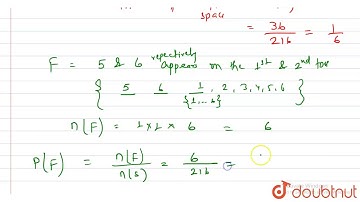 space
= 36/216 = 1/6
F = 5 & 6 repectively appears on the 1st & 2nd toss
{ 5 6 1, 2, 3, 4, 5, 6 }
{1,...6}
n(F) = 1 × 1 × 6 = 6
P(F) = n(F)/n(S) = 6/216 =
doubtnut